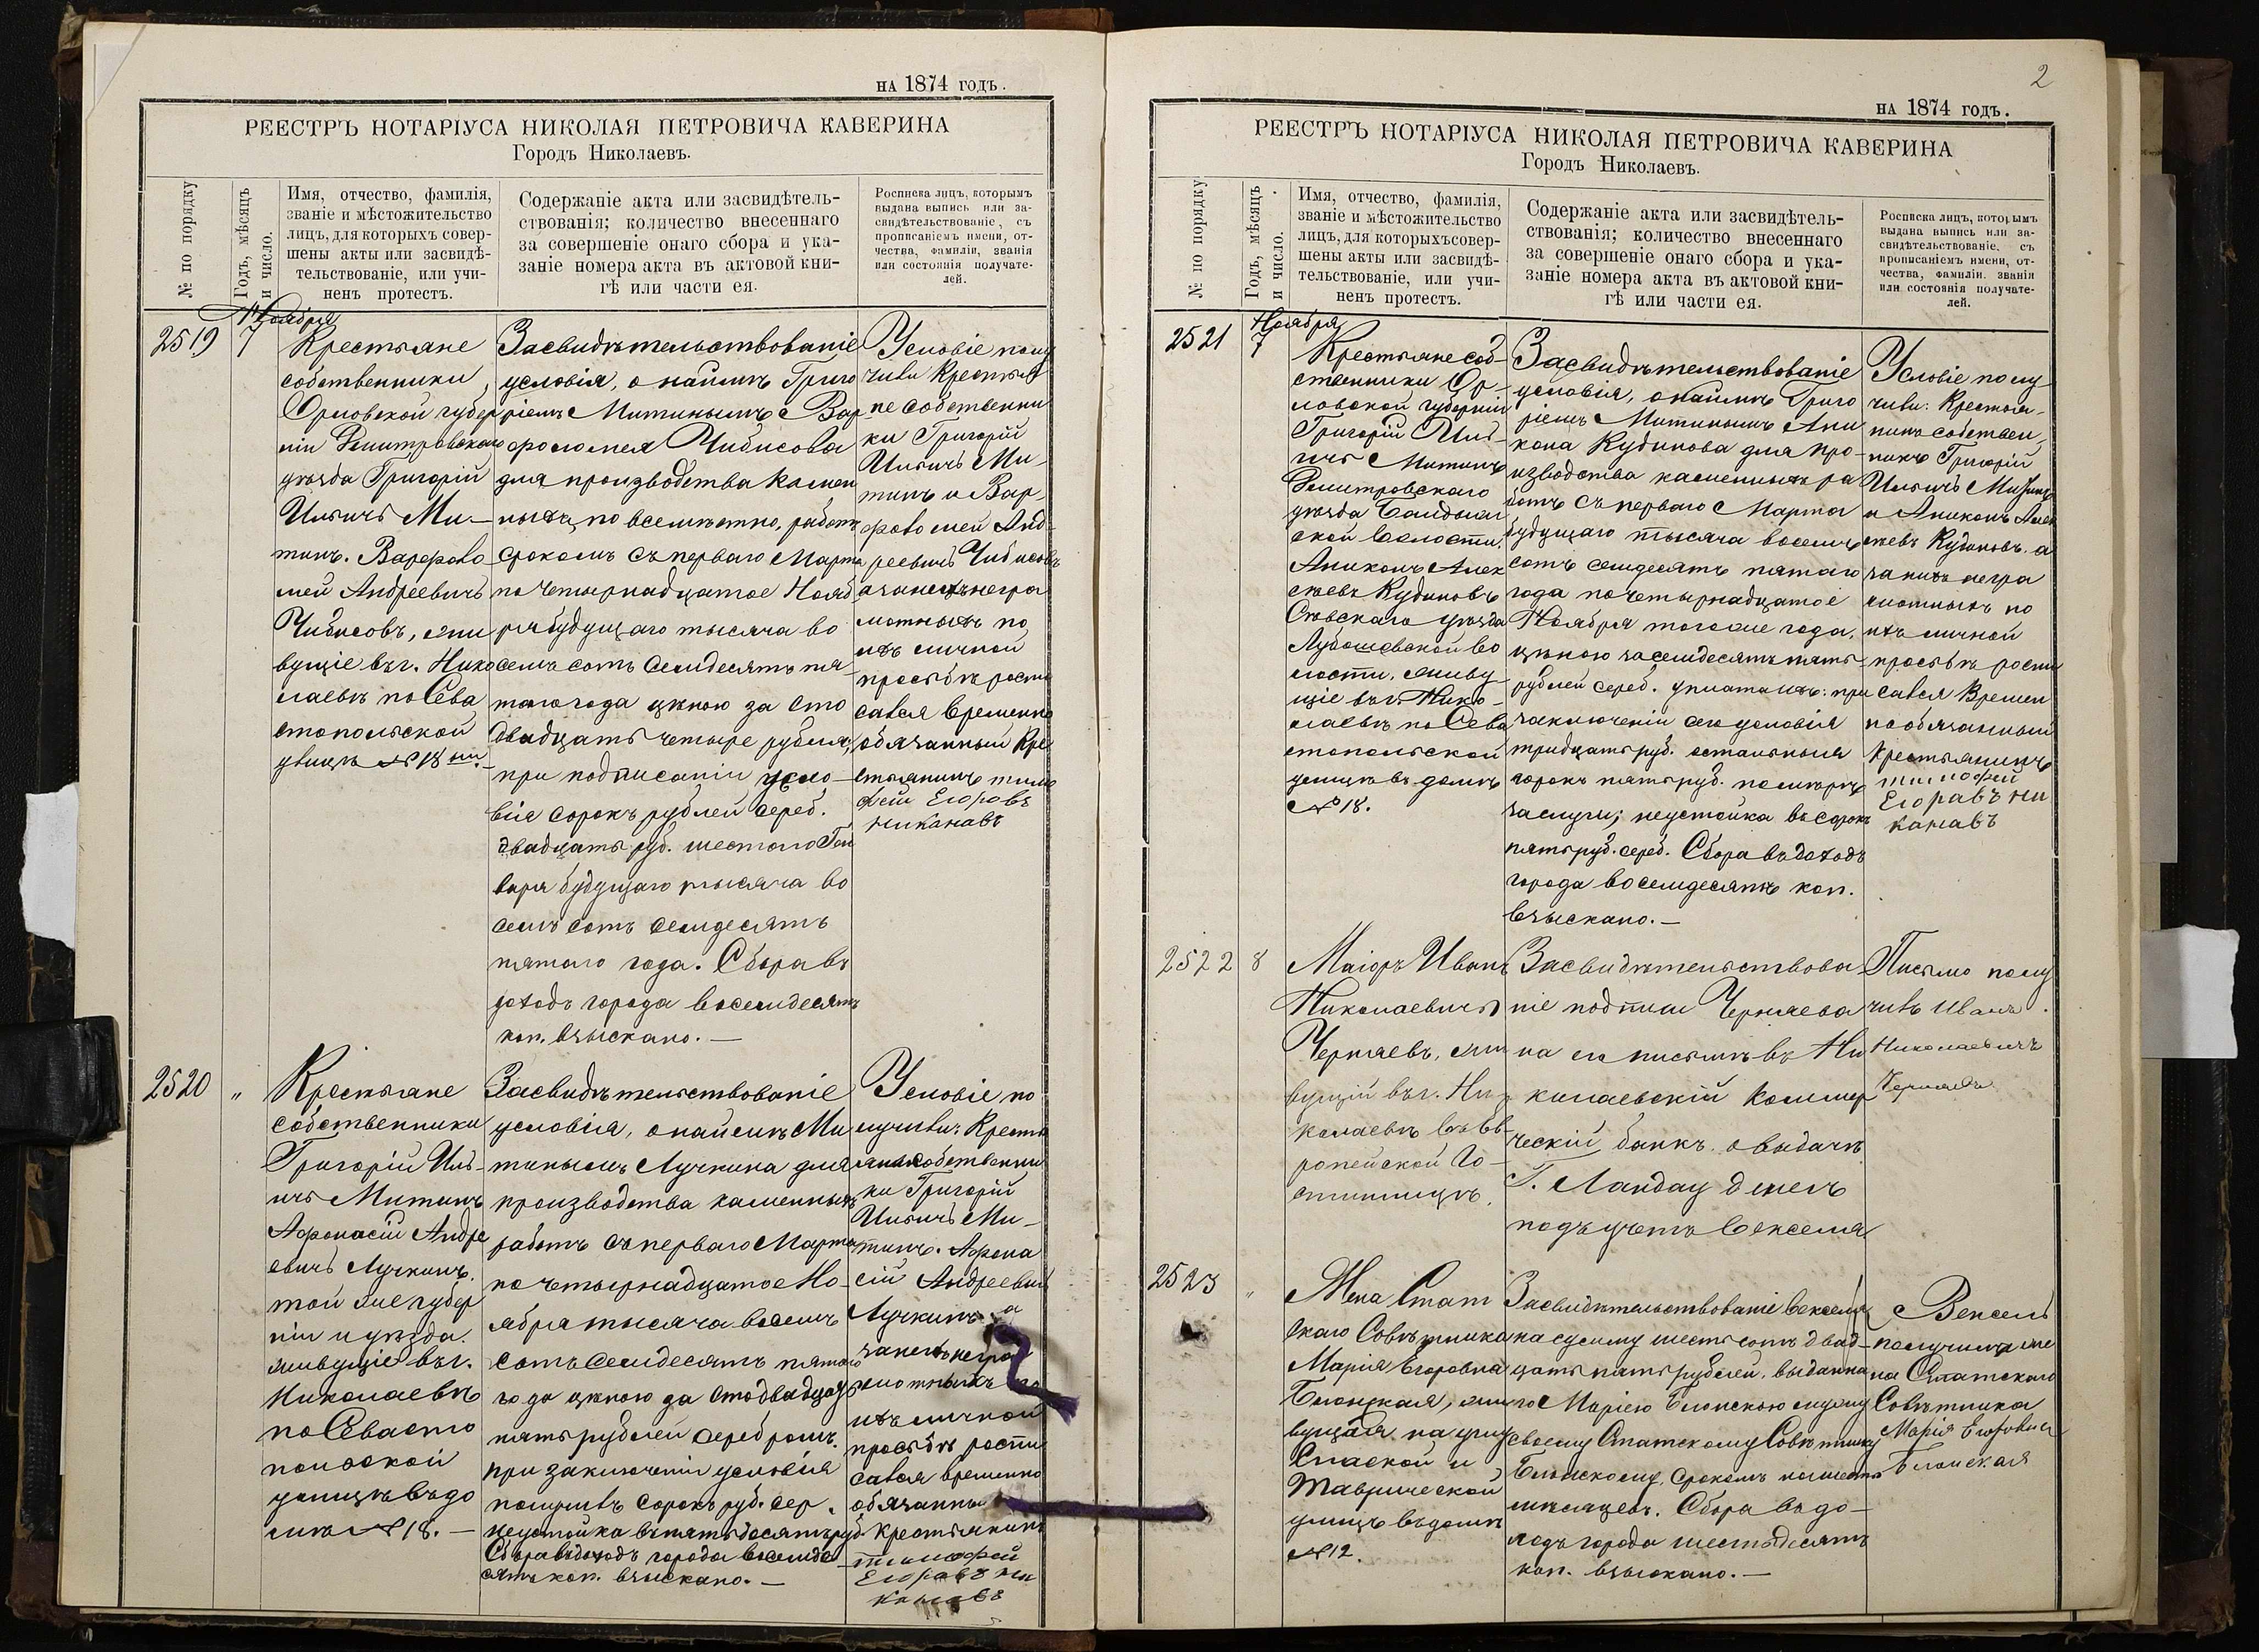 на 1874 годъ.
РЕЕСТРЪ НОТАРІУСА НИКОЛАЯ ПЕТРОВИЧА КАВЕРИНА
Городъ Николаевъ.
№ по порядку
Годъ, мѣсяцъ
и число.
Имя, отчество, фамилія,
званіе и мѣстожительство
лицъ, для которыхъ совер-
шены акты или засвидѣ-
тельствованіе, или учи-
ненъ протестъ.
Содержаніе акта или засвидѣтель-
ствованія; количество внесеннаго
за совершеніе онаго сбора и ука-
заніе номера акта въ актовой кни-
гѣ или части ея.
Росписка лицъ, которымъ
выдана выпись или за-
свидѣтельствованіе, съ
прописаніемъ имени, от-
чества, фамиліи, званія
или состоянія получате-
лей.
Ноября
2519
7
Крестьяне
собственники,
Орловской губер
ніи Дмитровскаго
уѣзда Григорій
Ильичъ Ми-
тинъ. Варфоло
мей Андреевичъ
Чибисовъ, жи
вущіе въ г. Нико
лаевѣ по Сева
стопольской
улицѣ №18
Засвидѣтельствованіе
условія, о наймѣ Григо
ріемъ Митинымъ Вар
фоломея Чибисова
для производства камен
ныхъ, работъ
срокомъ съ перваго Марта
по четырнадцатое Нояб
ря будущаго тысяча во
семь сотъ семидесятъ пя
таго года цѣною за сто
двадцать четыре рубля,
при подписаніи усло-
вія сорокъ рублей сереб.
двадцать руб. шестого Ген
варя будущаго тысяча во
семь сотъ семидесятъ
пятаго года. Сбора въ
доходъ города восемдесятъ
коп. взыскано.—
Условіе полу
чили Крестья
не собственни
ки Григорій
Ильичъ Ми-
тинъ и Вар
фоломей Анд
реевичъ Чибисовъ
а за негра
мотныхъ по
ихъ личной
просьбѣ роспи
сался временно
обязанный Кре
стьянинъ тимо
фей Егоровъ
никанавъ
2520
"
Крестьяне
собственники
Григорій Иль-
ичъ Митинъ
Афонасій Андре
евичъ Лучкинъ.
той же губер
ніи и уѣзда.
живущіе въ г.
Николаевѣ
по Севасто
польской
улицѣ въ до
мѣ №18.—
Засвидѣтельствованіе
условія, о наймѣ Ми
тинымъ Лучкина для
производства каменныхъ
работъ съ перваго Марта
по четырнадцатое Но-
ября тысяча восемь
сотъ семидесятъ пятаго
года цѣною за сто двадцать
пять рублей серебромъ.
при заключеніи условія
получилъ сорокъ руб. сер.
неустойка въ пятьдесятъ руб.
Сбора въ доходъ города восемде-
сятъ коп. взыскано.—
Условіе по
лучили: Кресть
яне собственни
ки Григорій
Ильичъ Ми-
тинъ. Афона
сій Андреевичъ
Лучкинъ а
за негра
мотныхъ по
ихъ личной
просьбѣ роспи
сался временно
обязанный
крестьянинъ
тимофей
Егоравъ ни
канавъ
2
на 1874 годъ.
РЕЕСТРЪ НОТАРІУСА НИКОЛАЯ ПЕТРОВИЧА КАВЕРИНА
Городъ Николаевъ.
№ по порядку
Годъ, мѣсяцъ
и число.
Имя, отчество, фамилія,
званіе и мѣстожительство
лицъ, для которыхъ совер-
шены акты или засвидѣ-
тельствованіе, или учи-
ненъ протестъ.
Содержаніе акта или засвидѣтель-
ствованія; количество внесеннаго
за совершеніе онаго сбора и ука-
заніе номера акта въ актовой кни-
гѣ или части ея.
Росписка лицъ, которымъ
выдана выпись или за-
свидѣтельствованіе, съ
прописаніемъ имени, от-
чества, фамиліи, званія
или состоянія получате-
лей.
Ноября
2521
7
Крестьяне соб-
ственники Ор-
ловской губерніи
Григорій Иль-
ичъ Митинъ
Дмитровскаго
уѣзда
ской волости.
Аниконъ Алек
сѣевъ Кудиновъ
Сѣвскаго уѣзда
Лубошевской во
лости, живу
щіе въ г. Нико-
лаевѣ по Сева
стопольской
улицѣ въ домѣ
№18.
Засвидѣтельствованіе
условія, о наймѣ Григо
ріемъ Митинымъ Ани
кона Кудинова для про-
изводства каменныхъ ра
ботъ съ перваго Марта
будущаго тысяча восемь
сотъ семидесятъ пятаго
года по четырнадцатое
Ноября того же года,
цѣною за семдесятъ пять
рублей сереб. уплата ихъ: при
заключеніи сего условія
тридцать руб. остальныя
сорокъ пять руб. по мѣрѣ
заслуги; неустойка въ сорокъ
пять руб. сереб. Сбора въ доходъ
города восемдесятъ коп.
взыскано.—
Условіе полу
чили: Крестья-
нинъ собствен-
никъ Григорій
Ильичъ Митинъ
и Аниконъ Алек
сѣевъ Кудиновъ. а
за нихъ негра
мотныхъ по
ихъ личной
просьбѣ роспи
сался Времен
но обязанный
Крестьянинъ
тимофей
Егоравъ ни
канавъ
2522
8
Маіоръ Иванъ
Николаевичъ
Черняевъ, жи
вущій въ г. Ни
колаевѣ въ Ев-
ропейской го-
стинницѣ.
Засвидѣтельствова
ніе подписи Черняева
на его письмѣ въ Ни
колаевскій коммер
ческій банкъ о выдачѣ
Г. Ландау денегъ
подъ учетъ векселя
Письмо полу
чилъ Иванъ
Николаевичъ
Черняевъ
2523
"
Жена Стат
скаго Совѣтника
Марія Егоровна
Блонская, жи
вущая на углу
Спаской и
Таврической
улицъ въ домѣ
№12.
Засвидѣтельствованіе векселя
на сумму шестьсотъ двад-
цать пять рублей, выданна
го Маріею Блонскою мужу
своему Статскому Совѣтнику
Блонскому, срокомъ на шесть
мѣсяцевъ. Сбора въ до-
ходъ города шестьдесятъ
коп. взыскано.—
Вексель
получила же
на Статскаго
Совѣтника
Марія Егоровна
Блонская